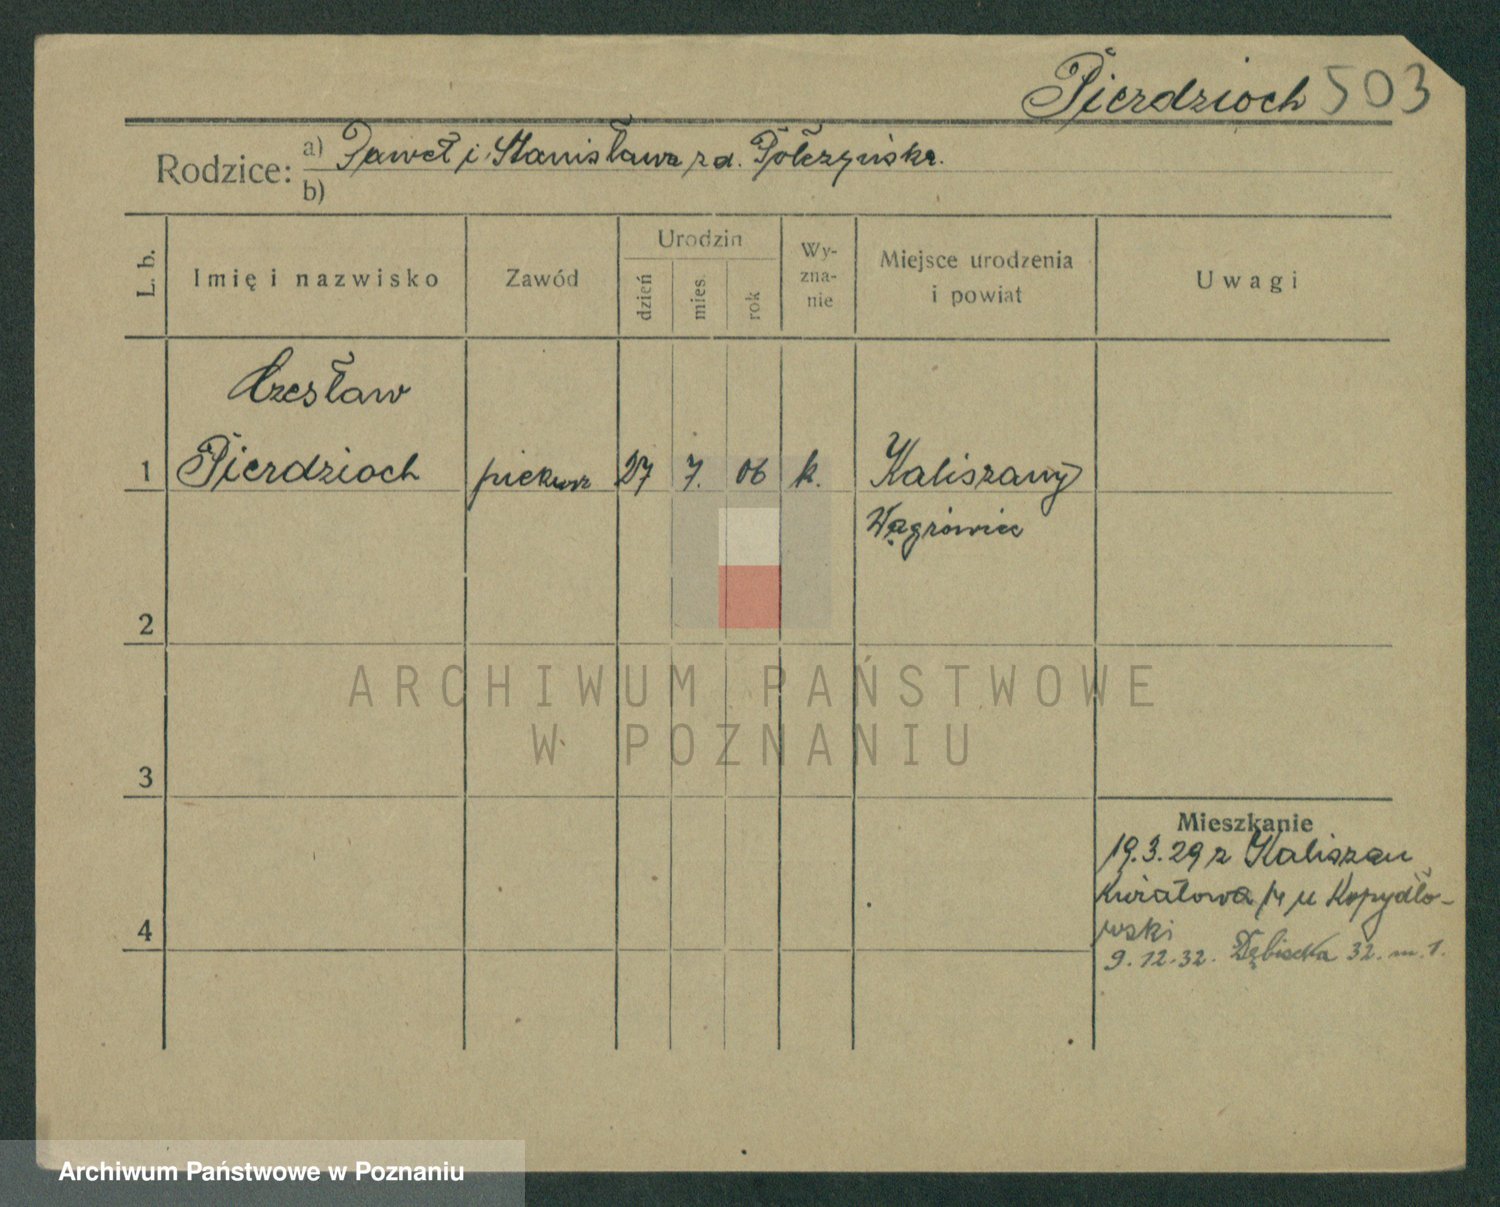 Pierdzioch 503
Rodzice: a) Paweł i Stanisława z d.
b)
L. b.
Imię i nazwisko
Zawód
Urodzin
dzień
mies.
rok
Wy-
zna-
nie
Miejsce urodzenia
i powiat
Uwagi
Czesław
1 Pierdzioch piekarz 27 7. 06 k. Kaliszany
Wągrowiec
2
3
4
Mieszkanie
19.3.29 z Kaliszan
Kwiatowa u Kopydło-
wski
9.12.32. Dębiecka 32. m. 1.
ARCHIWUM PAŃSTWOWE
W POZNANIU
Archiwum Państwowe w Poznaniu